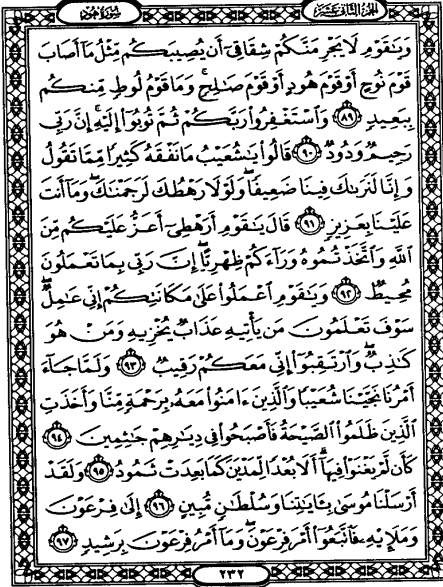 الجزء الثاني عشر
سورة هود
وَيَٰقَوْمِ لَا يَجْرِمَنَّكُمْ شِقَاقِىٓ أَن يُصِيبَكُم مِّثْلُ مَآ أَصَابَ
قَوْمَ نُوحٍ أَوْ قَوْمَ هُودٍ أَوْ قَوْمَ صَٰلِحٍ ۚ وَمَا قَوْمُ لُوطٍ مِّنكُم
بِبَعِيدٍ ﴿٨٩﴾ وَٱسْتَغْفِرُوا۟ رَبَّكُمْ ثُمَّ تُوبُوٓا۟ إِلَيْهِ ۚ إِنَّ رَبِّى
رَحِيمٌ وَدُودٌ ﴿٩٠﴾ قَالُوا۟ يَٰشُعَيْبُ مَا نَفْقَهُ كَثِيرًا مِّمَّا تَقُولُ
وَإِنَّا لَنَرَىٰكَ فِينَا ضَعِيفًا ۖ وَلَوْلَا رَهْطُكَ لَرَجَمْنَٰكَ ۖ وَمَآ أَنتَ
عَلَيْنَا بِعَزِيزٍ ﴿٩١﴾ قَالَ يَٰقَوْمِ أَرَهْطِىٓ أَعَزُّ عَلَيْكُم مِّنَ
ٱللَّهِ وَٱتَّخَذْتُمُوهُ وَرَآءَكُمْ ظِهْرِيًّا ۖ إِنَّ رَبِّى بِمَا تَعْمَلُونَ
مُحِيطٌ ﴿٩٢﴾ وَيَٰقَوْمِ ٱعْمَلُوا۟ عَلَىٰ مَكَانَتِكُمْ إِنِّى عَٰمِلٌ ۖ
سَوْفَ تَعْلَمُونَ مَن يَأْتِيهِ عَذَابٌ يُخْزِيهِ وَمَنْ هُوَ
كَٰذِبٌ ۖ وَٱرْتَقِبُوٓا۟ إِنِّى مَعَكُمْ رَقِيبٌ ﴿٩٣﴾ وَلَمَّا جَآءَ
أَمْرُنَا نَجَّيْنَا شُعَيْبًا وَٱلَّذِينَ ءَامَنُوا۟ مَعَهُۥ بِرَحْمَةٍ مِّنَّا وَأَخَذَتِ
ٱلَّذِينَ ظَلَمُوا۟ ٱلصَّيْحَةُ فَأَصْبَحُوا۟ فِى دِيَٰرِهِمْ جَٰثِمِينَ ﴿٩٤﴾
كَأَن لَّمْ يَغْنَوْا۟ فِيهَآ ۗ أَلَا بُعْدًا لِّمَدْيَنَ كَمَا بَعِدَتْ ثَمُودُ ﴿٩٥﴾ وَلَقَدْ
أَرْسَلْنَا مُوسَىٰ بِـَٔايَٰتِنَا وَسُلْطَٰنٍ مُّبِينٍ ﴿٩٦﴾ إِلَىٰ فِرْعَوْنَ
وَمَلَإِي۟هِۦ فَٱتَّبَعُوٓا۟ أَمْرَ فِرْعَوْنَ ۖ وَمَآ أَمْرُ فِرْعَوْنَ بِرَشِيدٍ ﴿٩٧﴾
٢٣٢